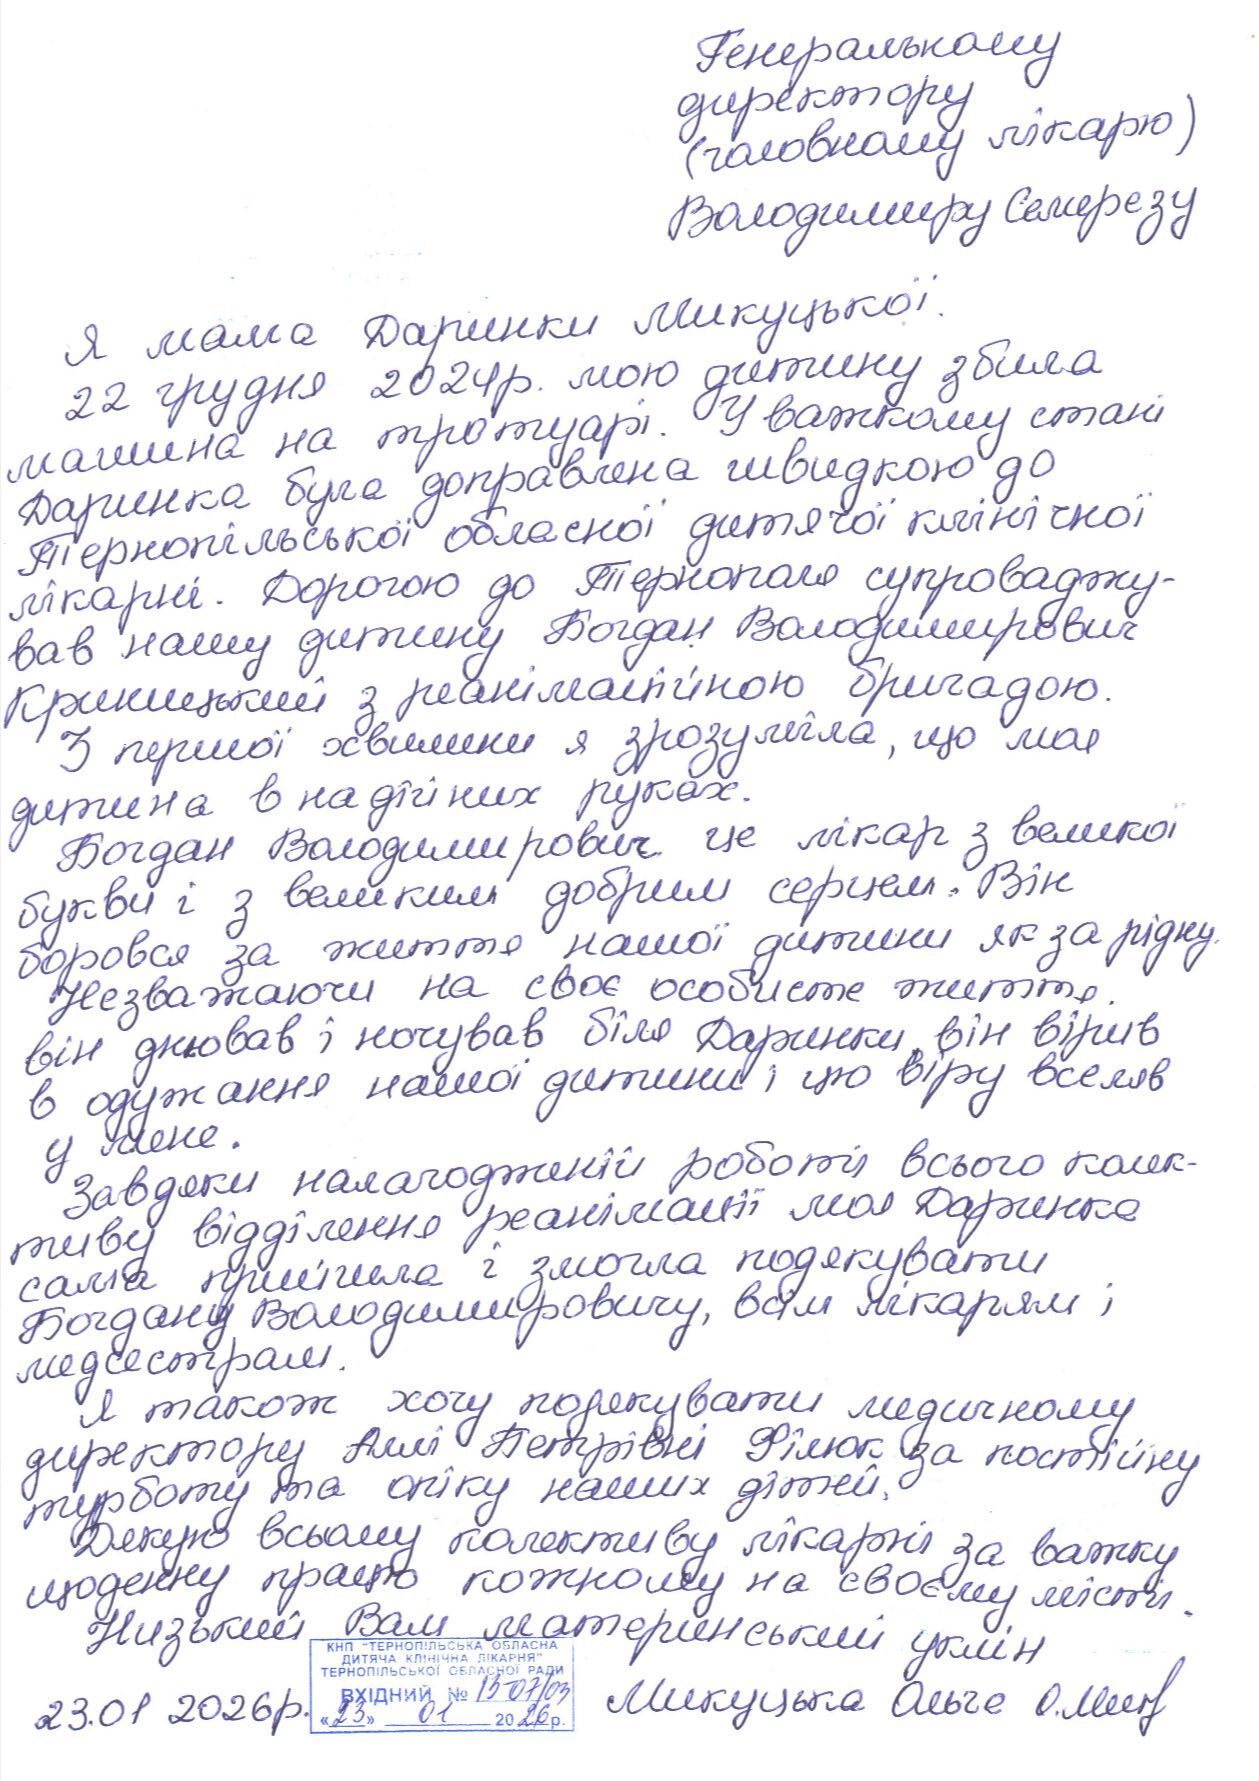 Генеральному
директору
(головному лікарю)
Володимиру Семерезу
Я мама Даринки Микуцької.
22 грудня 2024р. мою дитину збила
машина на тротуарі. У важкому стані
Даринка була доправлена швидкою до
Тернопільської обласної дитячої клінічної
лікарні. Дорогою до Тернополя супроваджу-
вав нашу дитину Богдан Володимирович
Криницький з реанімаційною бригадою.
З першої хвилини я зрозуміла, що моя
дитина в надійних руках.
Богдан Володимирович це лікар з великої
букви і з великим добрим серцем. Він
боровся за життя нашої дитини як за рідну.
Незважаючи на своє особисте життя.
він днював і ночував біля Даринки, він вірив
в одужання нашої дитини і цю віру вселяв
у мене.
Завдяки налагодженій роботі всього колек-
тиву відділення реанімації моя Даринка
сама прийшла і змогла подякувати
Богдану Володимировичу, всім лікарям і
медсестрам.
Я також хочу подякувати медичному
директору Аллі Петрівні Філюк за постійну
турботу та опіку наших дітей.
Дякую всьому колективу лікарні за важку
щоденну працю кожному на своєму місті.
Низький Вам материнський уклін
КНП "ТЕРНОПІЛЬСЬКА ОБЛАСНА
ДИТЯЧА КЛІНІЧНА ЛІКАРНЯ"
ТЕРНОПІЛЬСЬКОЇ ОБЛАСНОЇ РАДИ
ВХІДНИЙ № 13-07/03
«23» 01 2026р.
23.01 2026р. Микуцька Ольга